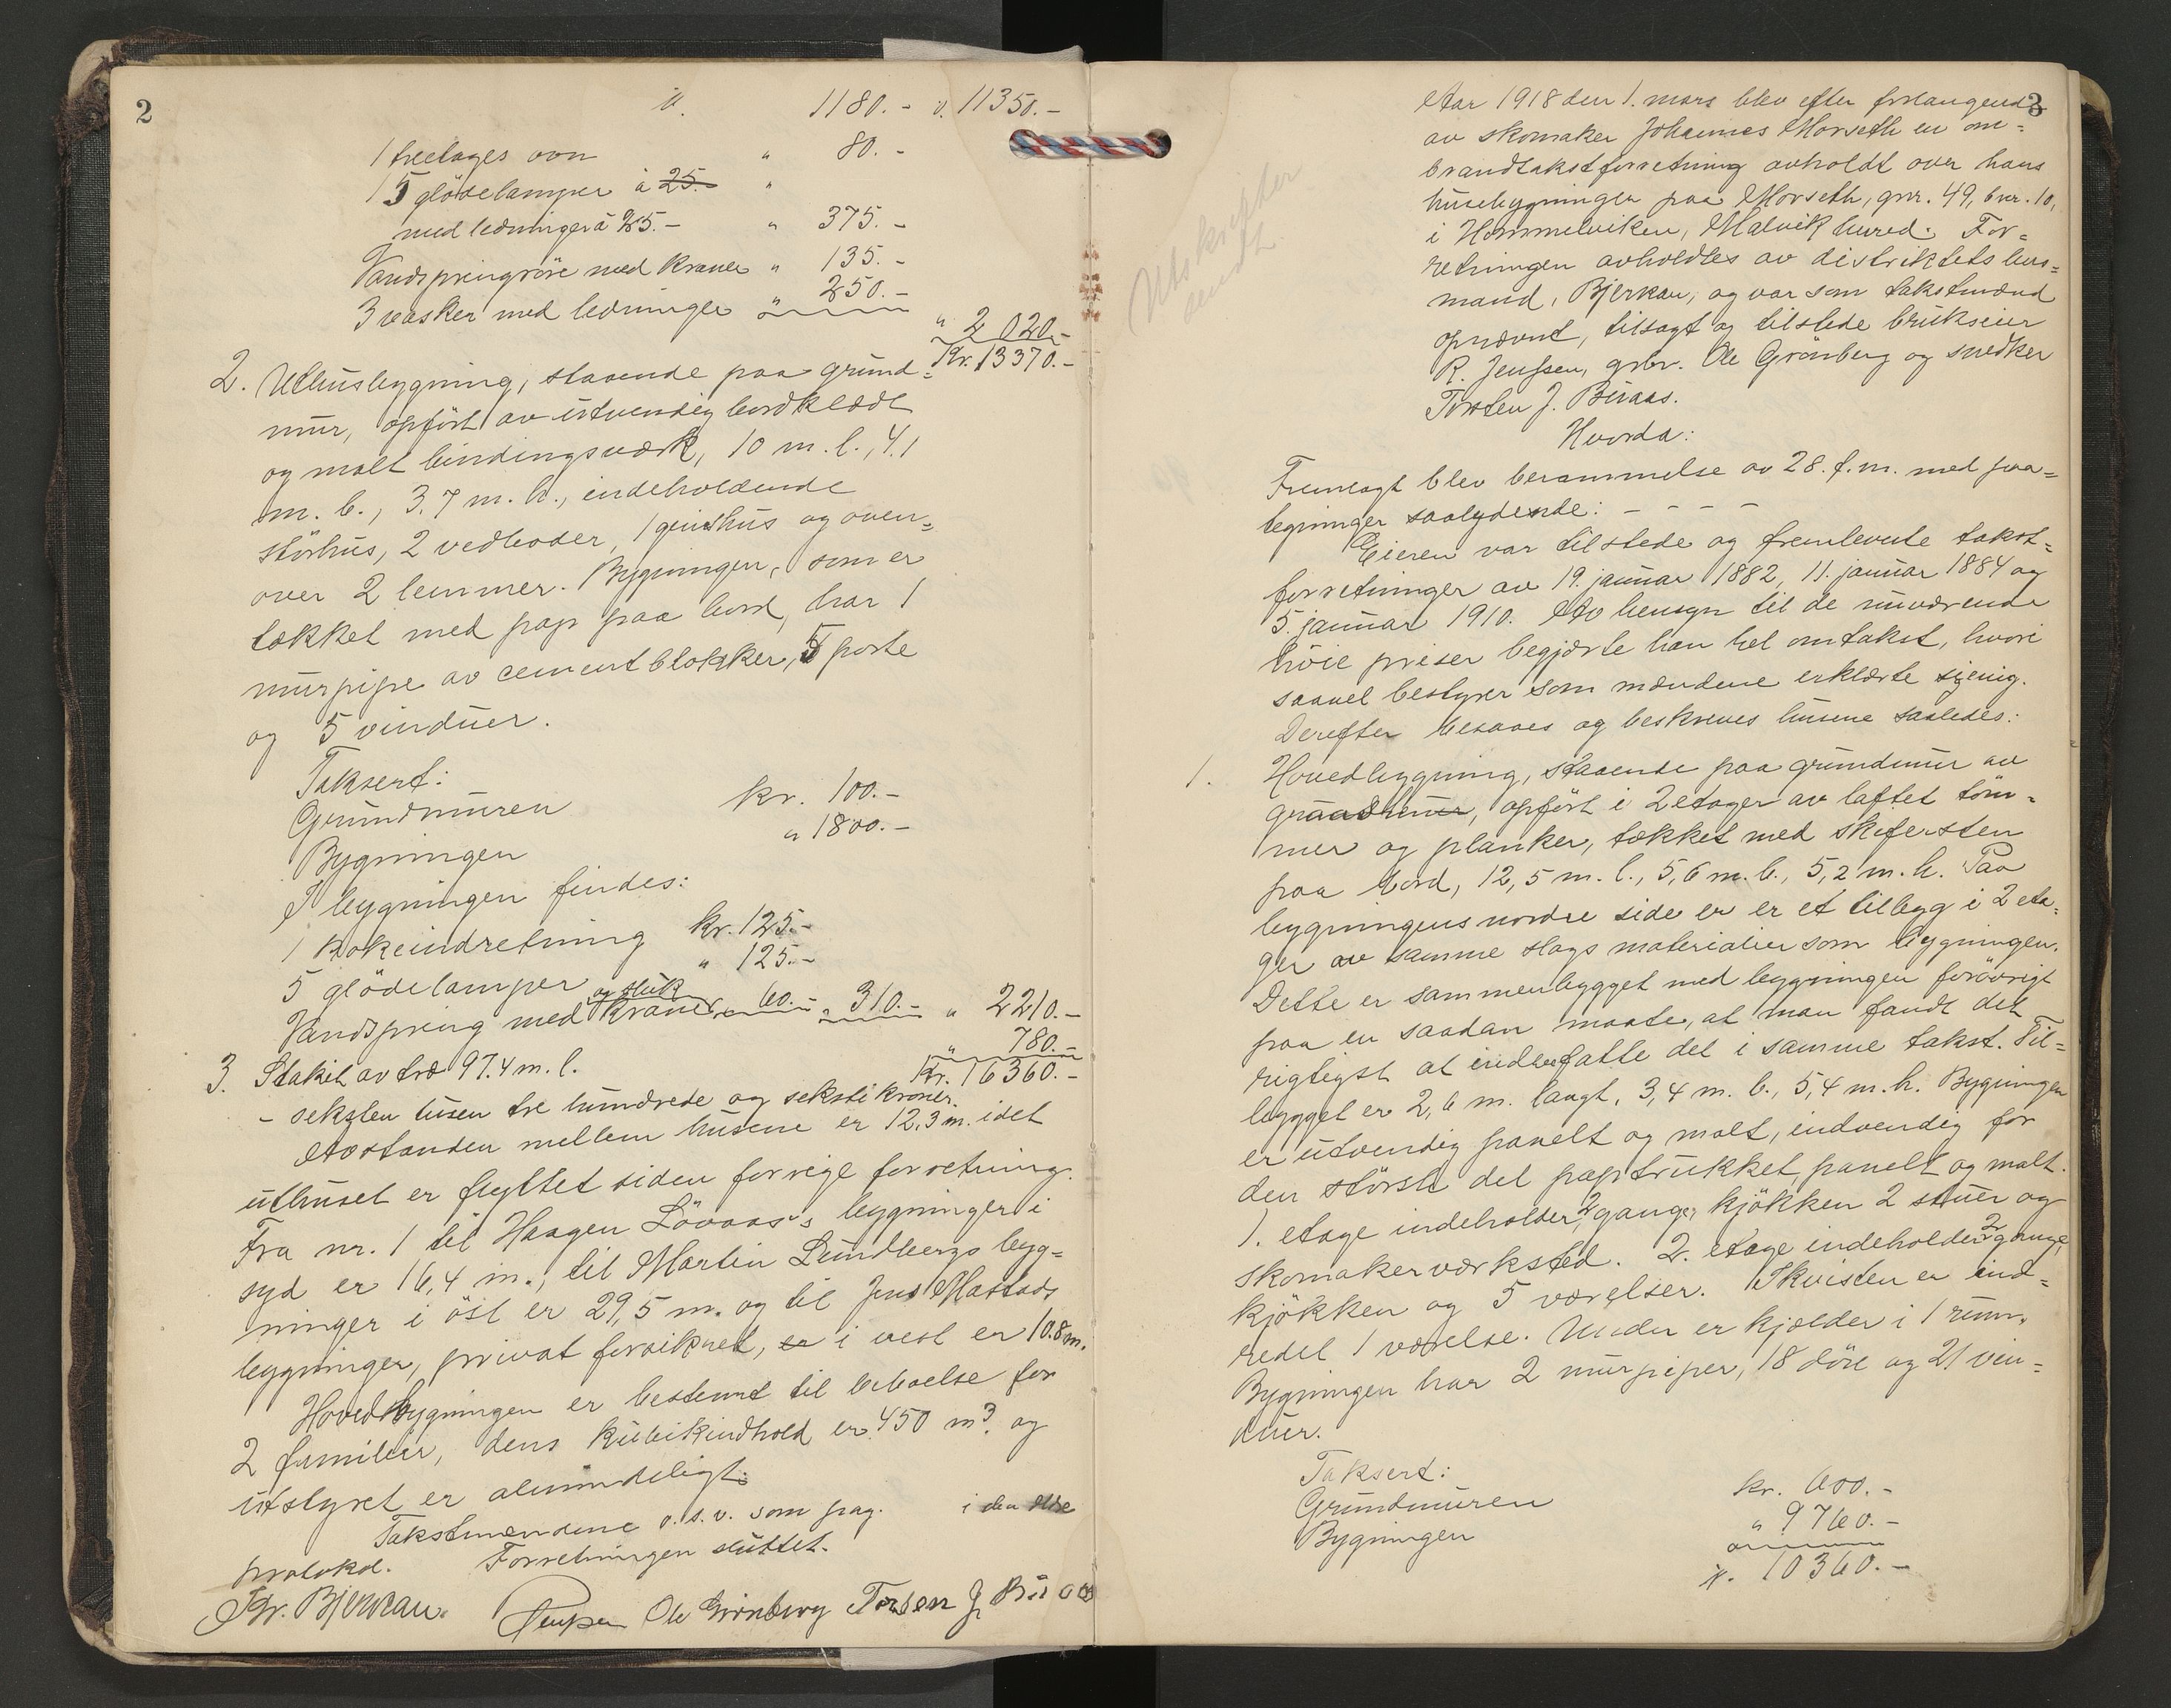 2
v. 1180.- v. 11350.-
1 treetages ovn " 80.-
15 glödelamper à 25.-
med ledninger à 25.- " 375.-
Vandspringröre med kraner " 135.-
3 vasker med ledninger " 250.-
" 2 020.-
Kr. 13370.-
2. Uthusbygning, staaende paa grund=
mur, opfört av utvendig bordklædt
og malt bindingsværk, 10 m. l., 4.1
m. b., 3.7 m. h., indeholdende
störhus, 2 vedboder, 1 grishus og oven=
over 2 lemmer. Bygningen, som er
tækket med pap paa bord, har 1
murpipe av cementblokker, 5 porte
og 5 vinduer.
Taksert:
Grundmuren kr. 100.-
Bygningen " 1800.-
I bygningen findes:
1 kokeindretning kr. 125.-
5 glödelamper " 125.-
og sluk
Vandspring med kraner " 60.- " 310.- " 2210.-
3. Stakit av træ 97.4 m. l. " 780.-
Kr. 16360.-
- seksten tusen tre hundrede og seksti kroner.
Avstanden mellem husene er 12.3 m. idet
uthuset er flyttet siden forrige forretning.
Fra nr. 1 til Haagen Lövaas's bygninger i
syd er 16,4 m., til Martin Lundbergs byg=
ninger i öst er 29,5 m. og til Jens Mastads
bygninger, privat forsikret, er i vest er 10.8 m.
Hovedbygningen er bestemt til beboelse for
2 familier, dens kubikindhold er 450 m3. og
utstyret er almindeligt.
Takstmændene o. s. v. som pag. i den
protokol. Forretningen sluttet.
Bjerkan. Jenssen Ole Grönberg Torsten J. Buaas
3
Aar 1918 den 1. mars blev efter forlangende
av skomaker Johannes Morseth en om=
brandtakstforretning avholdt over hans
husebygninger paa Morseth, gnr. 49, bnr. 10,
i Hommelviken, Malvik herred. For=
retningen avholdtes av distriktets lens=
mand, Bjerkan, og var som takstmænd
opnævnt, tilsagt og tilstede brukseier
R. Jenssen, grbr. Ole Grönberg og snedker
Torsten J. Buaas.
Hvorda:
Fremlagt blev berammelse av 28. f. m. med paa=
tegninger saalydende: - - - -
Eieren var tilstede og fremleverte takst=
forretninger av 19. januar 1882, 11. januar 1884 og
5. januar 1910. Av hensyn til de nuværende
höie priser begjærte han hel omtakst, hvori
saavel bestyrer som mændene erklærte sig enig.
Derefter besaaes og beskreves husene saaledes:
1. Hovedbygning, staaende paa grundmur av
graasten, opfört i 2 etager av laftet töm=
mer og planker, tækket med skifersten
paa bord, 12,5 m. l., 5,6 m. b., 5,2 m. h. Paa
bygningens nordre side er er et tilbyg i 2 eta=
ger av samme slags materialier som bygningen.
Dette er sammenbygget med bygningen forövrigt
paa en saadan maate, at man fandt det
rigtigst at indbefatte det i samme takst. Til=
bygget er 2,6 m. langt, 3,4 m. b., 5,4 m. h. Bygningen
er utvendig panelt og malt, indvendig for
den störste del paptrukket, panelt og malt.
1. etage indeholder 2 gange, kjökken 2 stuer og
skomakerværksted. 2. etage indeholder 2 gange,
kjökken og 5 værelser. I kvisten er ind=
redet 1 værelse. Under er kjælder i 1 rum.
Bygningen har 2 murpiper, 18 döre og 21 vin=
duer.
Taksert:
Grundmuren kr. 600.-
Bygningen " 9760.-
v. 10360.-